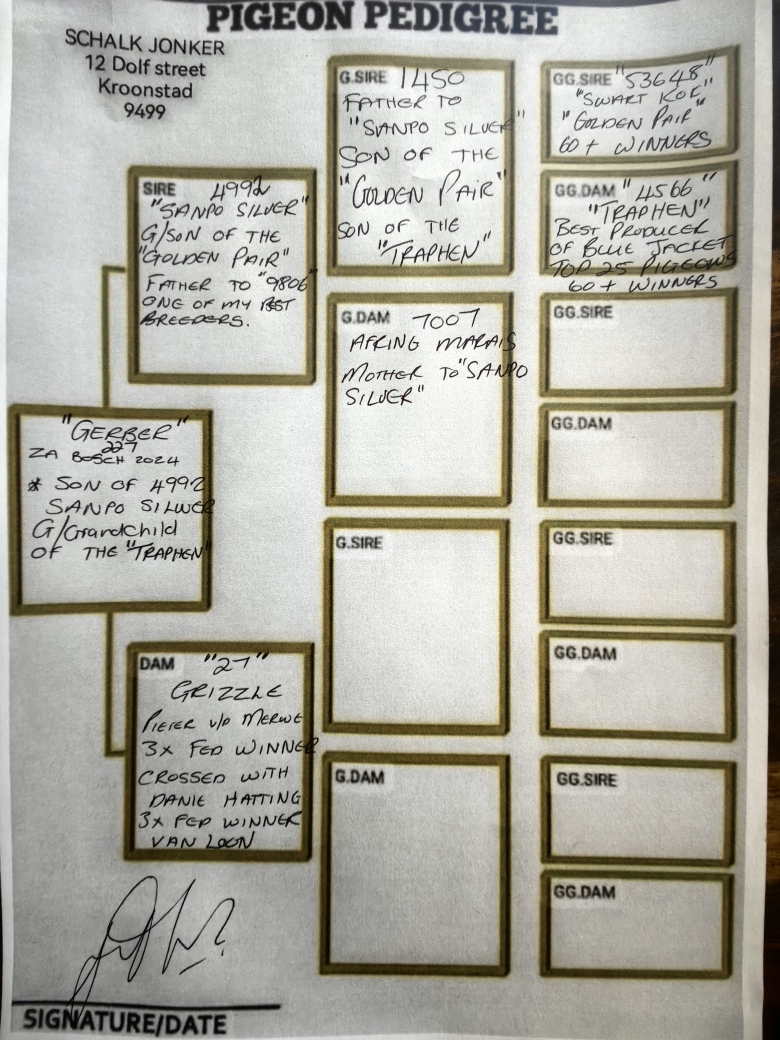 PIGEON PEDIGREE
SCHALK JONKER
12 Dolf street
Kroonstad
9499
"GERBER"
227
ZA BOSCH 2024
* SON OF 4992
SANPO SILVER
G/Grandchild
OF THE "TRAPHEN"
SIRE 4992
"SANPO SILVER"
G/SON OF THE
"GOLDEN PAIR"
FATHER TO "9806"
ONE OF MY BEST
BREEDERS.
DAM "27"
GRIZZLE
PIETER v/D MERWE
3x FED WINNER
CROSSED WITH
DANIE HATTING
3x FED WINNER
VAN LOON
G.SIRE 1450
FATHER TO
"SANPO SILVER"
SON OF THE
"GOLDEN PAIR"
SON OF THE
"TRAPHEN"
G.DAM 7007
MARAIS
MOTHER TO "SANPO
SILVER"
G.SIRE
G.DAM
GG.SIRE "53648"
"SWART KOK"
"GOLDEN PAIR"
60+ WINNERS
GG.DAM "4566"
"TRAPHEN"
BEST PRODUCER
OF BLUE JACKET
TOP 25 PIGEONS
60+ WINNERS
GG.SIRE
GG.DAM
GG.SIRE
GG.DAM
GG.SIRE
GG.DAM
SIGNATURE/DATE